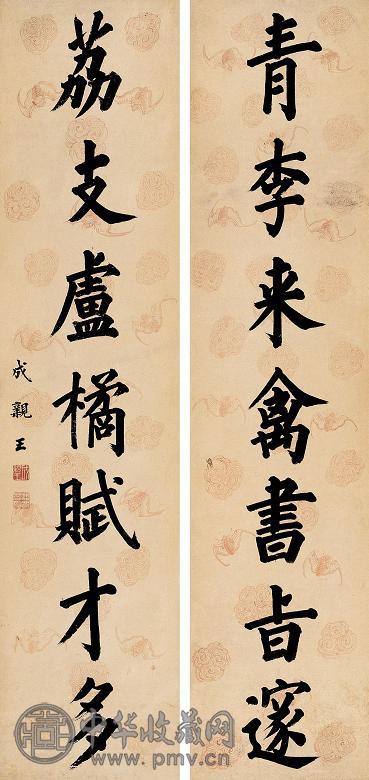 青李来禽書㫖邃
荔支盧橘賦才多
成親王
中华收藏网
www.pmv.cn